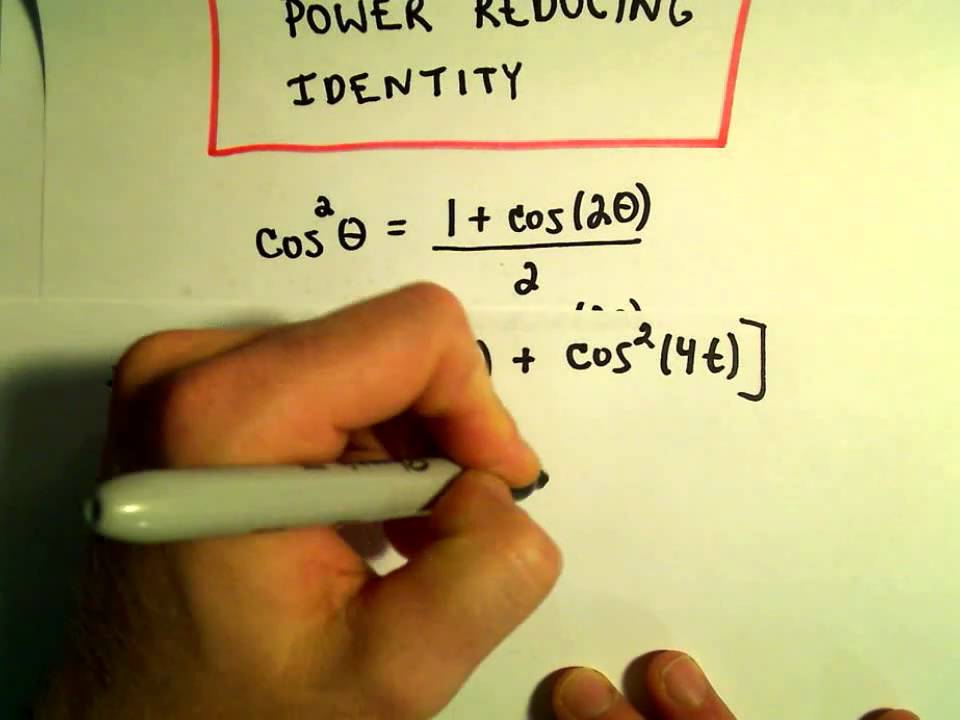 POWER REDUCING
IDENTITY
cos²θ = 1 + cos(2θ)
2
) + cos²(4t)]